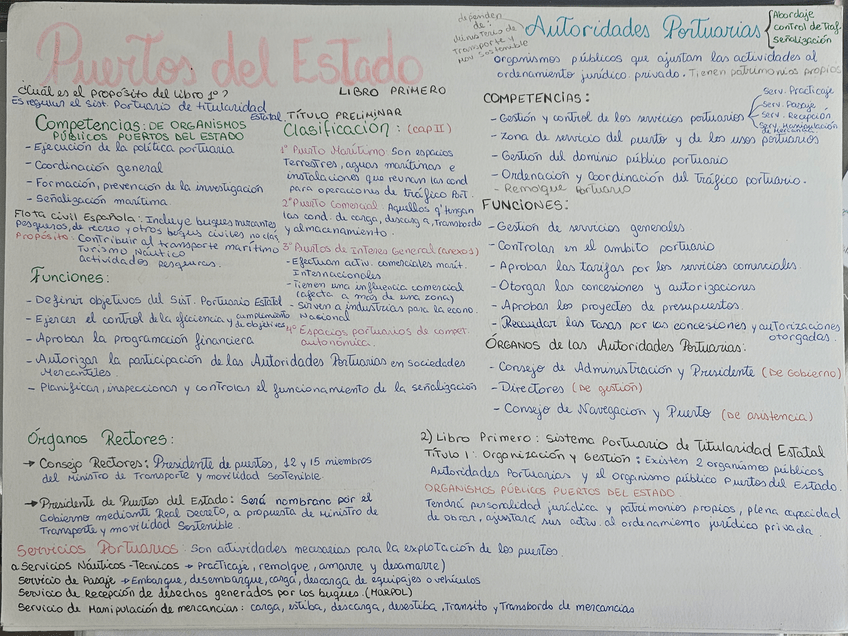 Puertos del Estado
¿Cuál es el proposito del Libro 1º?
LIBRO PRIMERO
Es regular el sist. Portuario de titularidad
Estatal
TÍTULO PRELIMINAR
Competencias: DE ORGANISMOS
PÚBLICOS PUERTOS DEL ESTADO
- Ejecución de la política portuaria
- Coordinación general
- Formación, prevención de la investigación
- Señalización marítima
Flota civil Española: Incluye buques mercantes
pesqueros, de recreo y otros buques civiles no clas.
Propósito: Contribuir al transporte marítimo
Turismo Náutico
Actividades pesqueras.
Clasificación: (cap II)
1º Puerto Marítimo: Son espacios
Terrestres, aguas marítimas e
instalaciones que reunan las cond
para operaciones de tráfico Port.
2º Puerto Comercial: Aquellos q' tengan
las cond. de carga, descarga, Transbordo
y almacenamiento.
3º Puertos de Interes General (anexo 1)
- Efectuan activ. comerciales marít.
Internacionales
- Tienen una influencia comercial
(afecta a más de una zona)
- Sirven a industrias para la econo.
Nacional
4º Espacios portuarios de compet.
autonómica.
Funciones:
- Definir objetivos del Sist. Portuario Estatal
- Ejercer el control de la eficiencia y cumplimiento
de objetivos
- Aprobar la programación financiera
- Autorizar la participación de las Autoridades Portuarias en Sociedades
Mercantiles
- Planificar, inspeccionar y controlar el funcionamiento de la señalización
Órganos Rectores:
→ Consejo Rectores: Presidente de puertos, 12 y 15 miembros
del Ministro de Transporte y movilidad Sostenible.
→ Presidente de Puertos del Estado: Será nombrano por el
Gobierno mediante Real Decreto, a propuesta de Ministro de
Transporte y movilidad Sostenible.
dependen
de:
Ministerio de
Transporte y
Mov Sostenible
Autoridades Portuarias
Abordaje
control de Traf.
señalización
organismos públicos que ajustan las actividades al
ordenamiento jurídico privado. Tienen patrimonios propios
COMPETENCIAS:
- Gestión y control de los servicios portuarios
Serv. Practicaje
Serv. Pasaje
Serv. Recepción
Serv. Manipulación
de Mercancía
- Zona de servicio del puerto y de los usos portuarios
- Gestión del dominio público portuario
- Ordenación y Coordinación del Tráfico portuario.
- Remolque portuario
FUNCIONES:
- Gestión de servicios generales
- Controlar en el ambito portuario
- Aprobar las tarifas por los servicios comerciales
- Otorgar las concesiones y autorizaciones
- Aprobar los proyectos de presupuestos
- Recaudar las tasas por las concesiones y autorizaciones
otorgadas.
ÓRGANOS DE LAS AUTORIDADES PORTUARIAS:
- Consejo de Administración y Presidente (DE GOBIERNO)
- Directores (De gestión)
- Consejo de Navegación y Puerto (DE asistencia)
2) Libro Primero: Sistema Portuario de Titularidad Estatal
Título 1: Organización y Gestión: Existen 2 organismos públicos
Autoridades Portuarias y el organismo público Puertos del Estado.
ORGANISMOS PÚBLICOS PUERTOS DEL ESTADO.
Tendrá personalidad jurídica y patrimonios propios, plena capacidad
de obrar, ajustará sus activ. al ordenamiento jurídico privada.
Servicios Portuarios: Son actividades necesarias para la explotación de los puertos.
a Servicios Náuticos-Tecnicos → Practicaje, remolque, amarre y desamarre)
Servicio de Pasaje → Embarque, desembarque, carga, descarga de equipajes o vehículos
Servicio de Recepción de desechos generados por los buques. (MARPOL)
Servicio de Manipulación de mercancias: carga, estiba, descarga, desestiba, Transito y Transbordo de mercancías